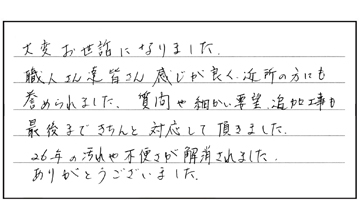 大変お世話になりました.
職人さん達皆さん感じが良く、近所の方にも
誉められました. 質問や細かい要望、追加工事も
最後まできちんと対応して頂きました.
26年の汚れや不便さが解消されました.
ありがとうございました.